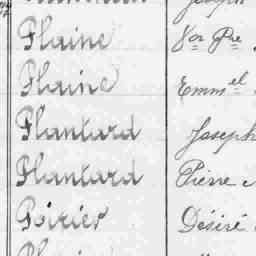 Plaine Vor Pre
Plaine Emmel
Plantard Joseph
Plantard Pierre
Poirier Désiré